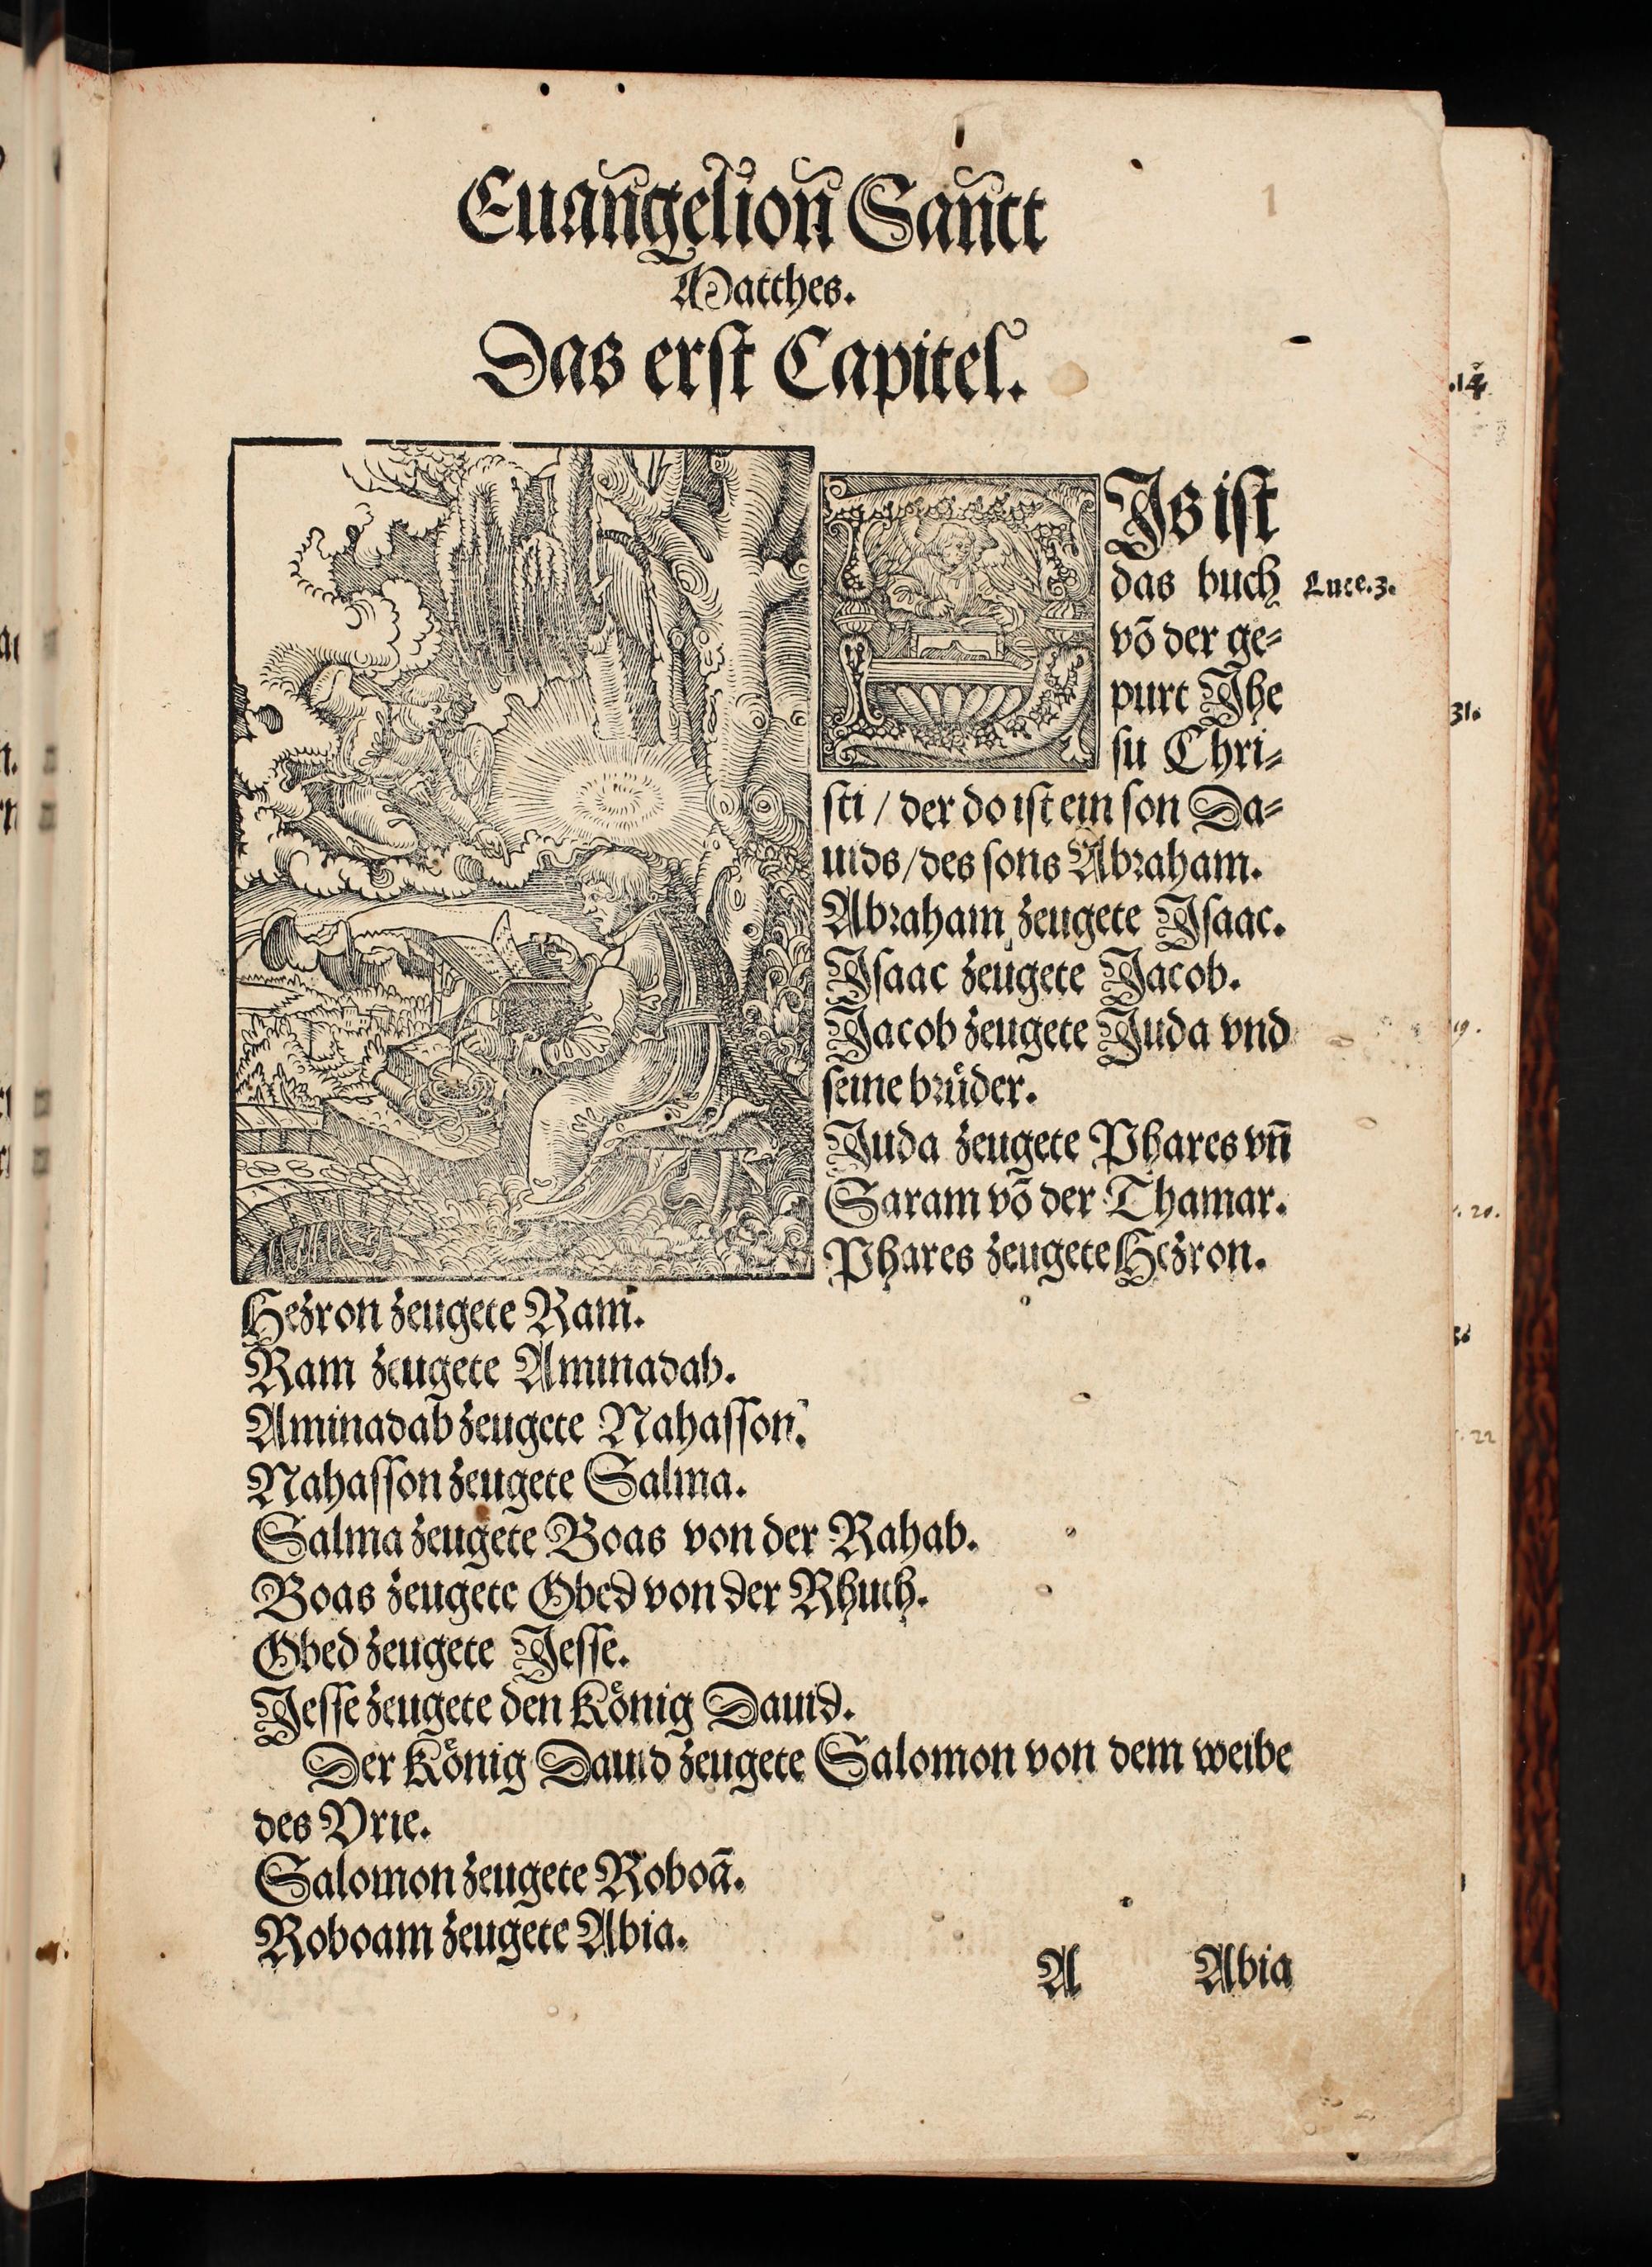 Euangelion Sanct
Matthes.
Das erst Capitel.
DJs ist
das buch
võ der ge-
purt Jhe
su Chri-
sti / der do ist ein son Da-
uids / des sons Abraham.
Abraham zeugete Jsaac.
Jsaac zeugete Jacob.
Jacob zeugete Juda vnd
seine brůder.
Juda zeugete Phares vn̄
Saram võ der Thamar.
Phares zeugete Hezron.
Luce.3.
Hezron zeugete Ram.
Ram zeugete Aminadab.
Aminadab zeugete Nahasson.
Nahasson zeugete Salma.
Salma zeugete Boas von der Rahab.
Boas zeugete Obed von der Rhuth.
Obed zeugete Jesse.
Jesse zeugete den Koͤnig Dauid.
Der Koͤnig Dauid zeugete Salomon von dem weibe
des Vrie.
Salomon zeugete Roboã.
Roboam zeugete Abia.
A Abia
1
.14
31.
19.
20.
22